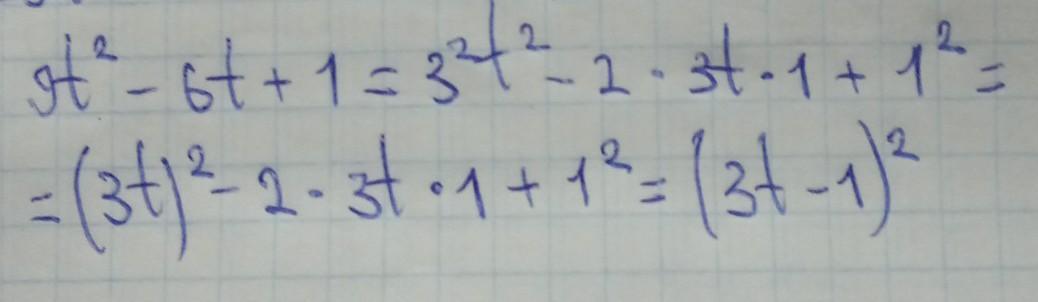 9t² - 6t + 1 = 3²t² - 2 · 3t · 1 + 1² =
= (3t)² - 2 · 3t · 1 + 1² = (3t - 1)²